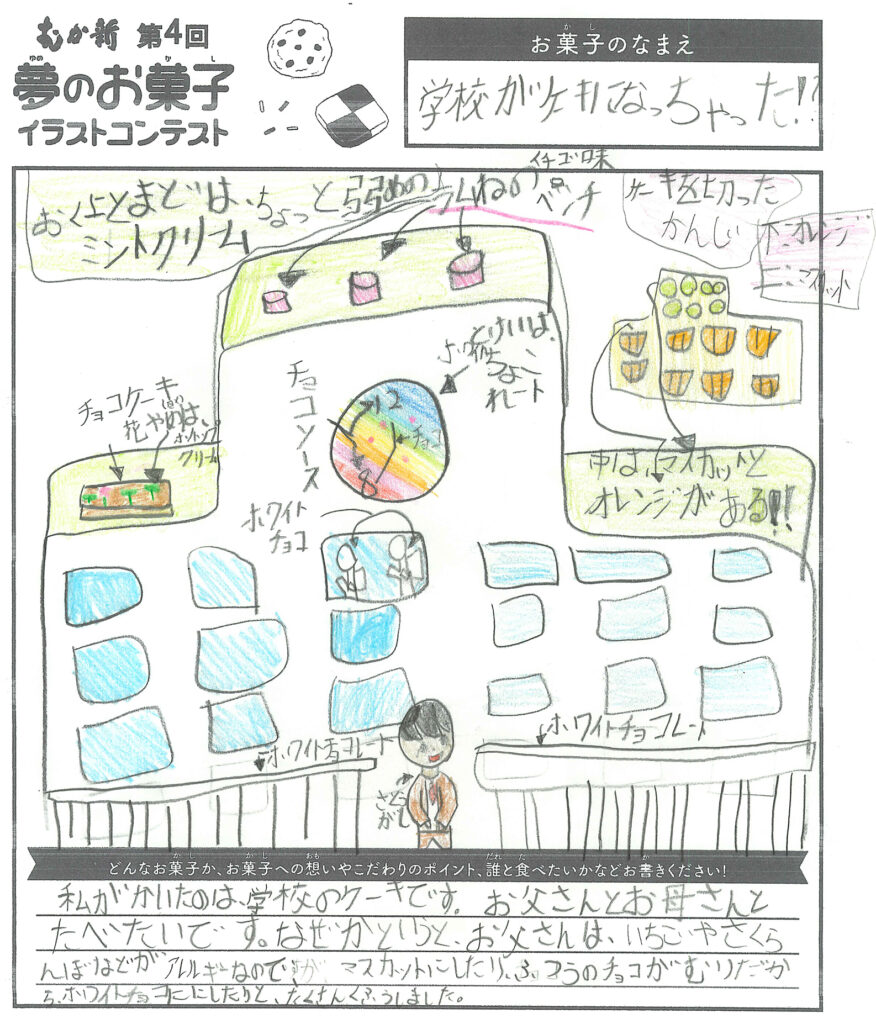 むか新 第4回
夢のお菓子
イラストコンテスト
お菓子のなまえ
学校がケーキになっちゃった!!?
おく上とまどは、ちょっと弱めの
ミントクリーム
イチゴ味
ラムねの
ベンチ
ケーキを切った
かんじ
オレンジ
マスカット
とけいは、
ホワイト
ちょこ
れート
チョコソース
12
チョコ
8
チョコケーキ
花やめは、
ホイップ
クリーム
中は、マスカットと
オレンジがある!!
ホワイト
チョコ
ホワイトチョコレート
ホワイトチョコレート
さとう
がし
どんなお菓子か、お菓子への想いやこだわりのポイント、誰と食べたいかなどお書きください!
私がかいたのは、学校のケーキです。お父さんとお母さんと
たべたいです。なぜかというと、お父さんは、いちごやさくら
んぼなどがアレルギーなのですが マスカットにしたり、ふつうのチョコがむりだか
ら、ホワイトチョコにしたりと、たくさんくふうしました。